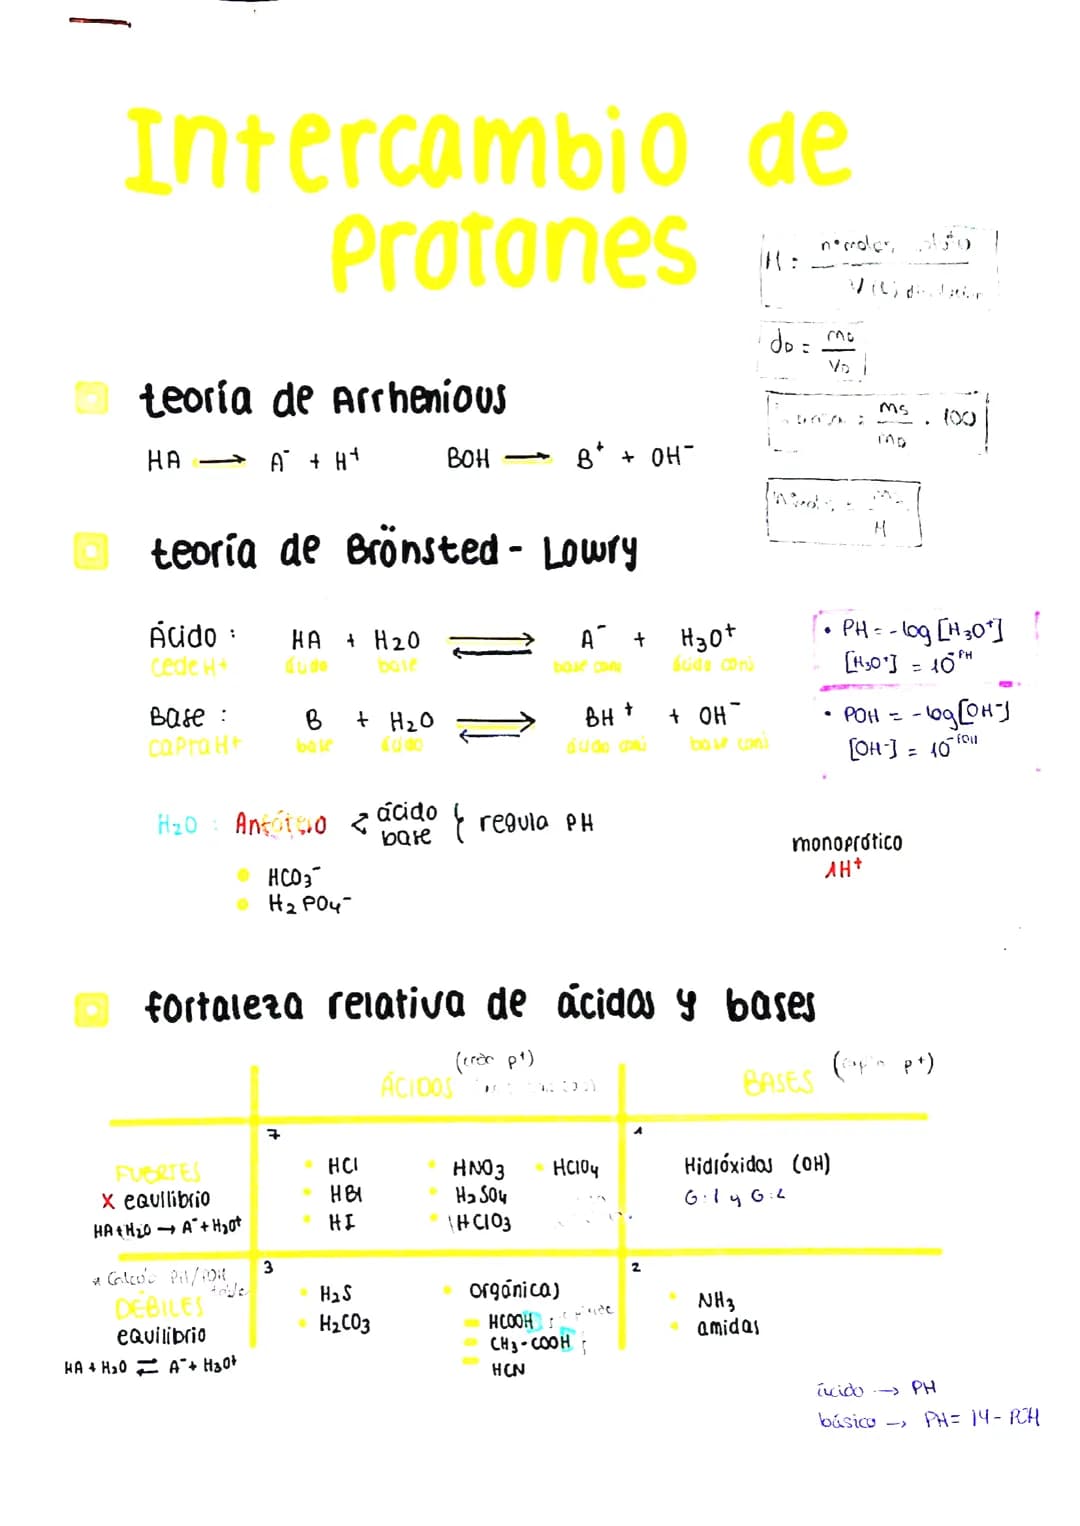 Intercambio de
Protones
M = nº moles
V (L) disolución
dD = mD
VD
mS . 100
mD
mS
M
teoría de Arrhenious
HA → A⁻ + H⁺ BOH → B⁺ + OH⁻
teoría de Brönsted - Lowry
Ácido : HA + H2O ⇌ A⁻ + H3O⁺
cede H+ ácido base base conj ácido conj
Base : B + H2O ⇌ BH⁺ + OH⁻
capta H+ base ácido ácido conj base conj
• PH = -log [H3O⁺]
[H3O⁺] = 10⁻ᴾᴴ
• POH = -log [OH-]
[OH-] = 10⁻ᴾᴼᴴ
H2O : Anfótero < ácido base } regula PH
• HCO3⁻
• H2PO4⁻
monoprótico
1H⁺
fortaleza relativa de ácidos y bases
ÁCIDOS (ceden p+)
BASES (captan p+)
FUERTES
X equilibrio
HA + H2O → A⁻ + H3O⁺
7
• HCl • HNO3 • HClO4
• HBr • H2SO4
• HI • HClO3
1
Hidróxidos (OH)
G:1 y G:2
* Calcular PH/POH
DÉBILES
equilibrio
HA + H2O ⇌ A⁻ + H3O⁺
3
• H2S • orgánicas
• H2CO3 HCOOH
CH3-COOH
HCN
2
• NH3
• amidas
ácido → PH
básico → PH = 14 - POH